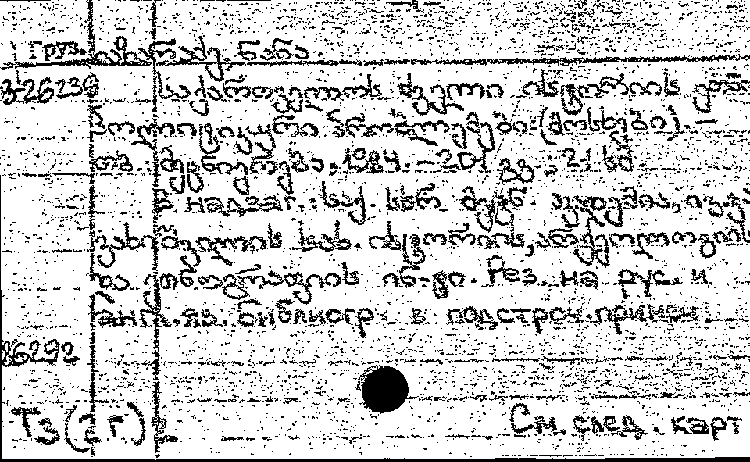 Груз. ხაზარაძე, ნანა.
3-26236 საქართველოს ძველი ისტორიის ეთნო-
პოლიტიკური პრობლემები: (მოსხები). –
თბ.: მეცნიერება, 1984. – 201 გვ.; 21 სმ
В надзаг.: საქ. სსრ მეცნ. აკადემია, ივ. ჯა-
ვახიშვილის სახ. ისტორიის, არქეოლოგიის
და ეთნოგრაფიის ინ-ტი. Рез. на рус. и
англ. яз. Библиогр. в подстроч. примеч.
86292
Т3(2Г)
См. след. карт